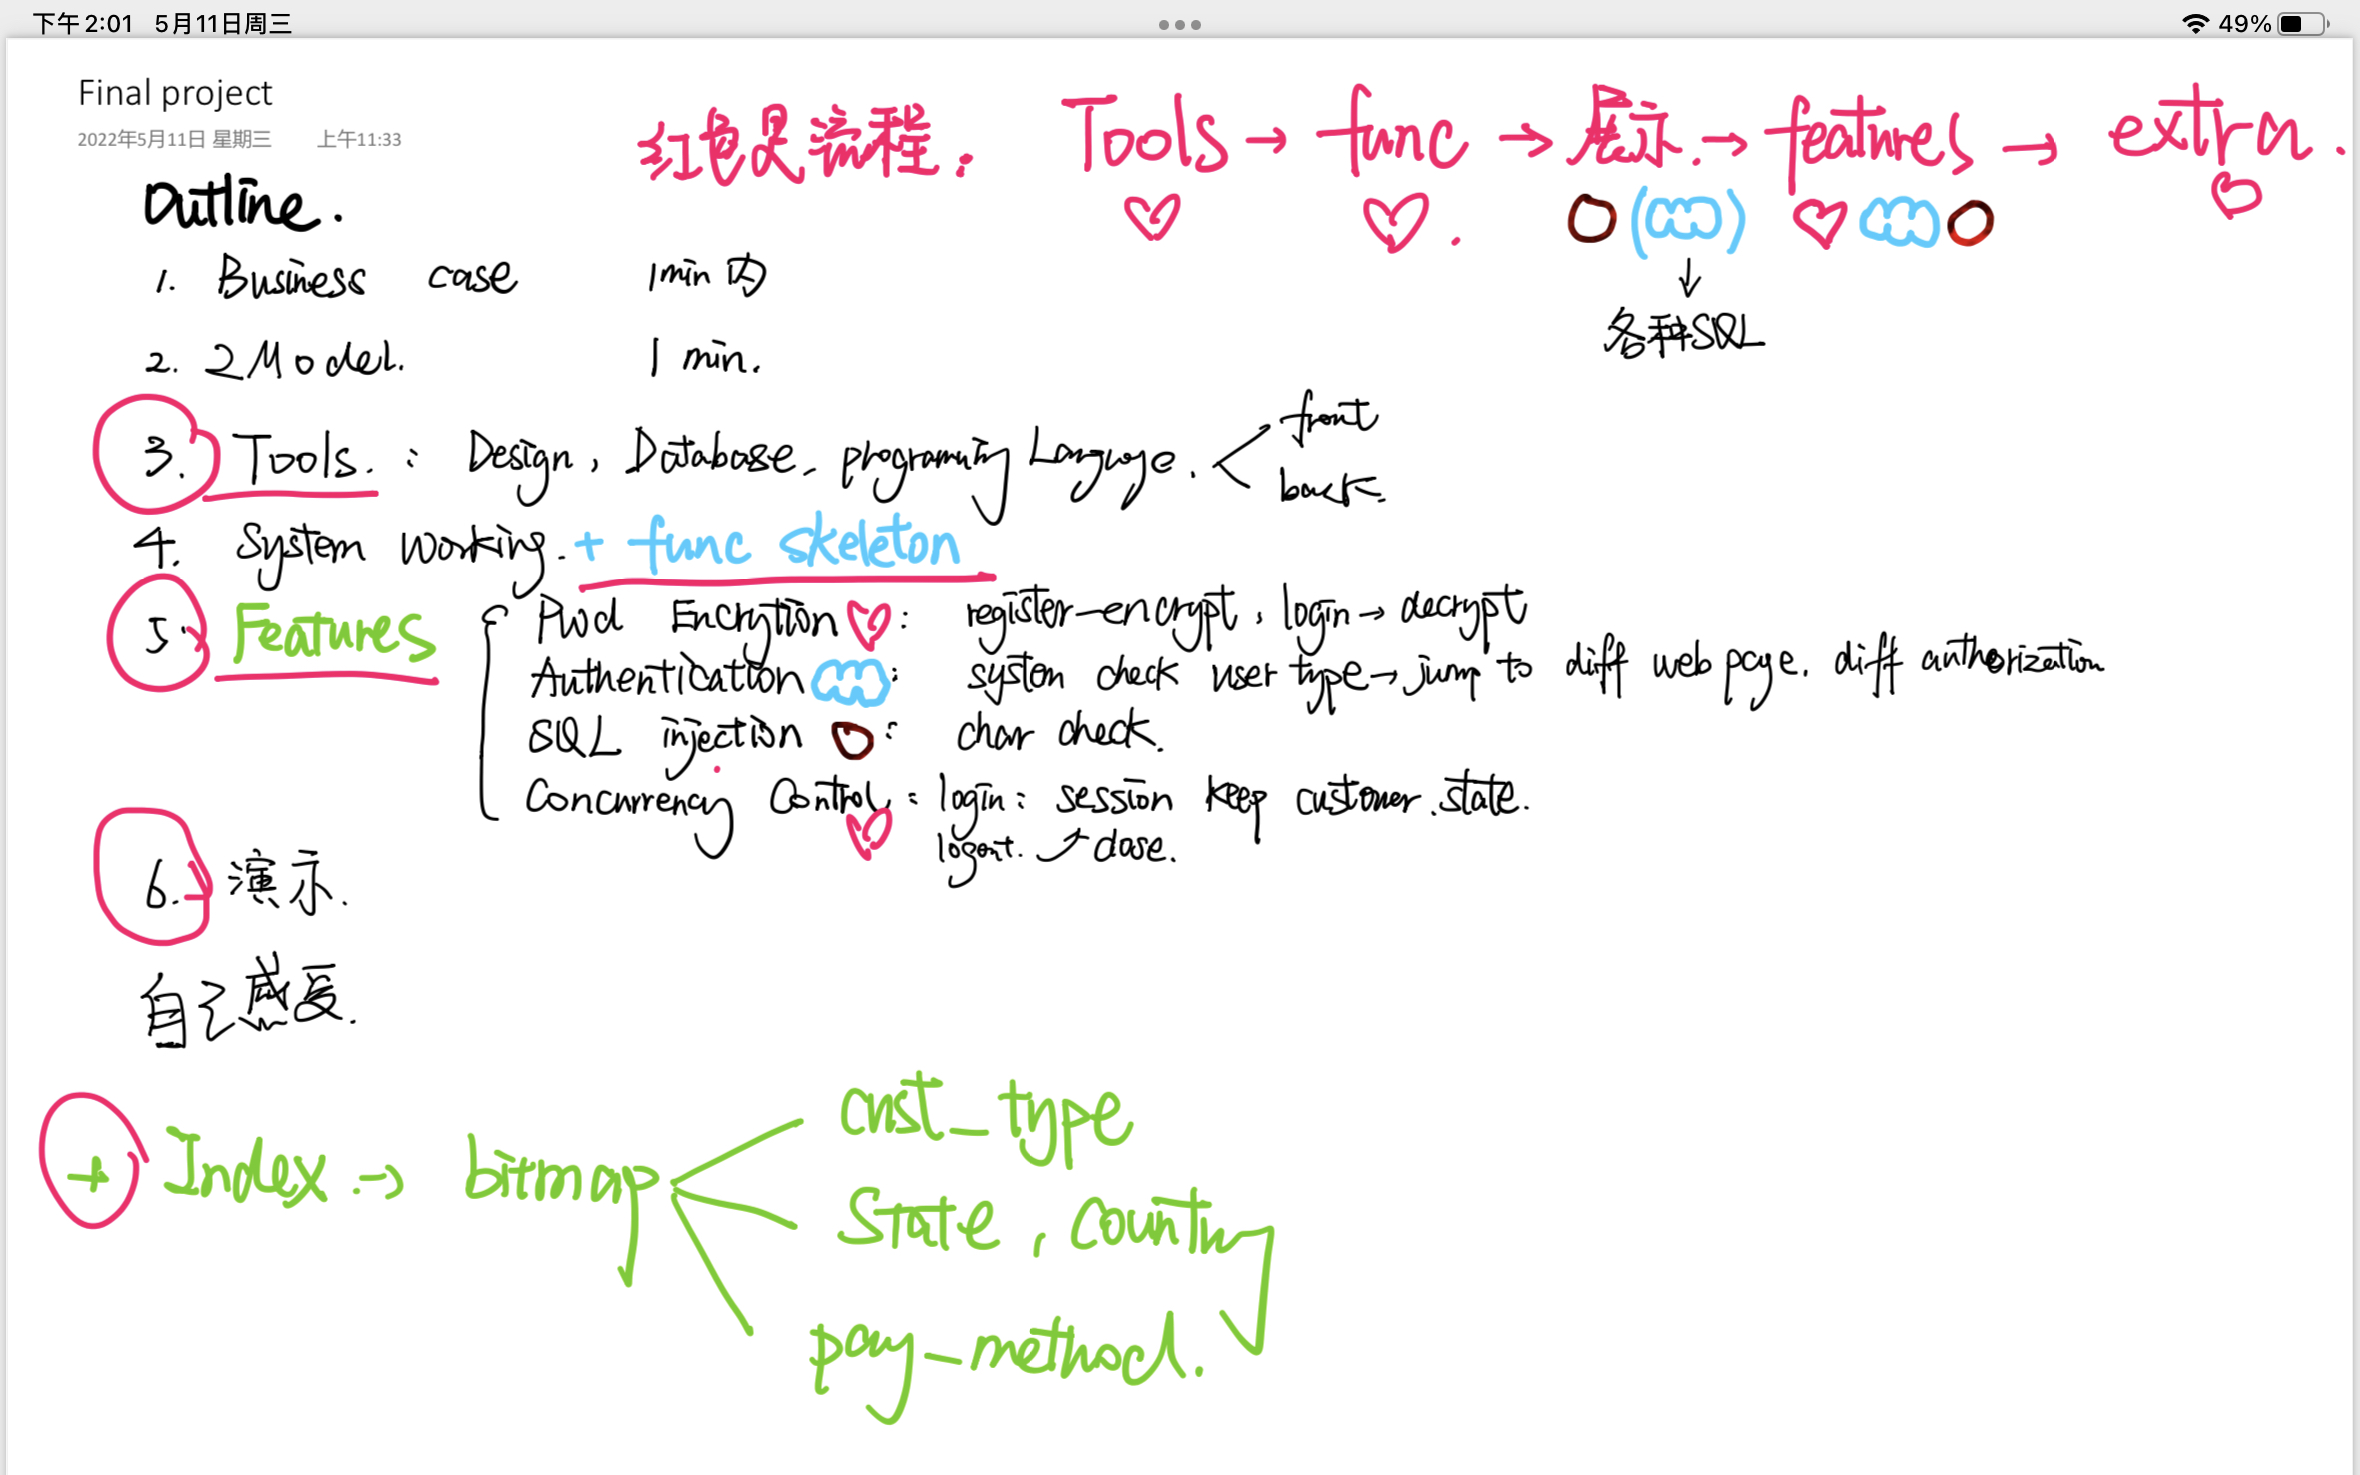 下午2:01 5月11日周三
49%
Final project
2022年5月11日 星期三 上午11:33
红色是流程. Tools → func → 展示. → features → extra.
各种SQL
Outline.
1. Business case 1min 内
2. 2Model. 1 min.
3. Tools. : Design, Database, programing Language. front
back.
4. System Working. + func skeleton
5. Features
Pwd Encrytion : register-encrypt, login → decrypt
Authentication : system check user type → jump to diff web page. diff authorization
SQL injection : char check.
Concurrency Control : login : session keep customer state.
logout. close.
6. 演示.
自己感受.
+ Index → bitmap
cust_type
State, country
pay_method.